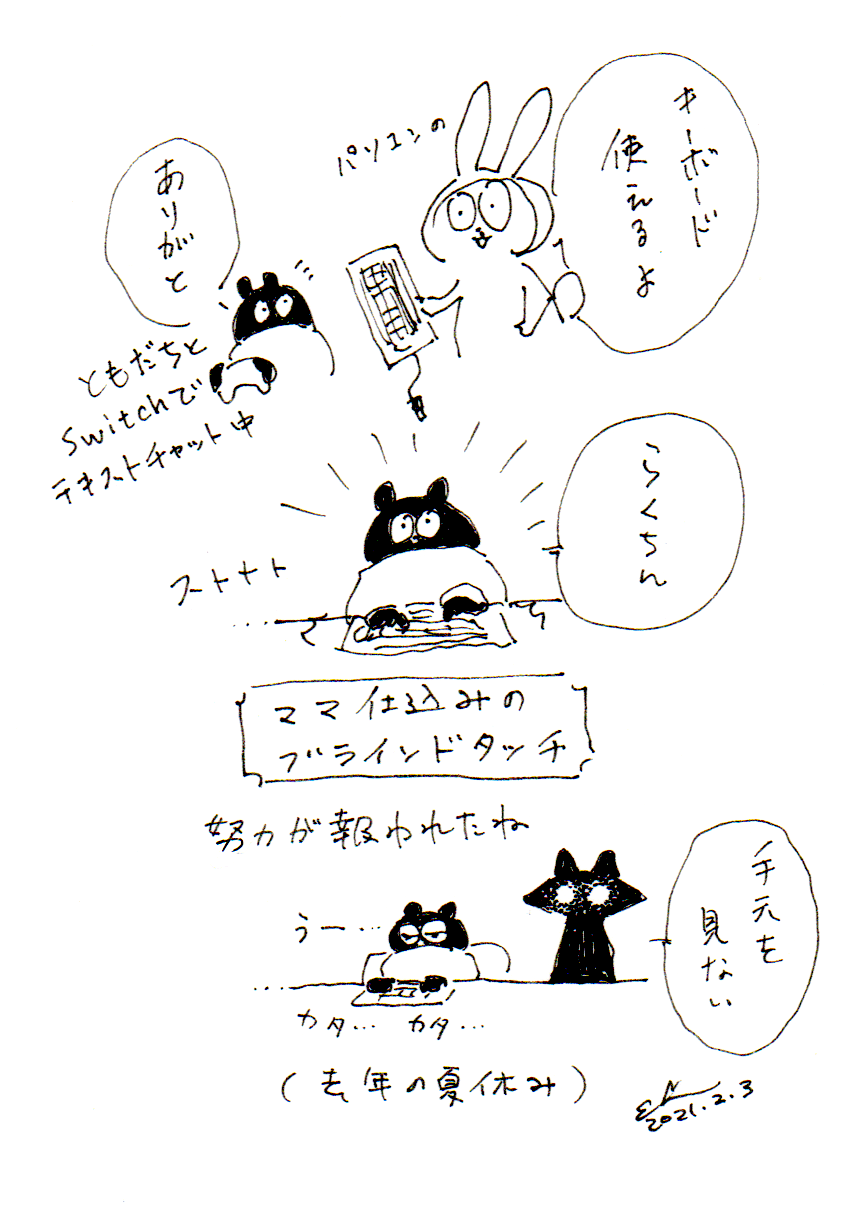 パソコンの
キーボード
使えるよ
ありがと
ともだちと
Switchで
テキストチャット中
らくちん
ストトト
ママ仕込みの
ブラインドタッチ
努力が報われたね
手元を
見ない
うー…
カタ… カタ…
(去年の夏休み)
2021.2.3